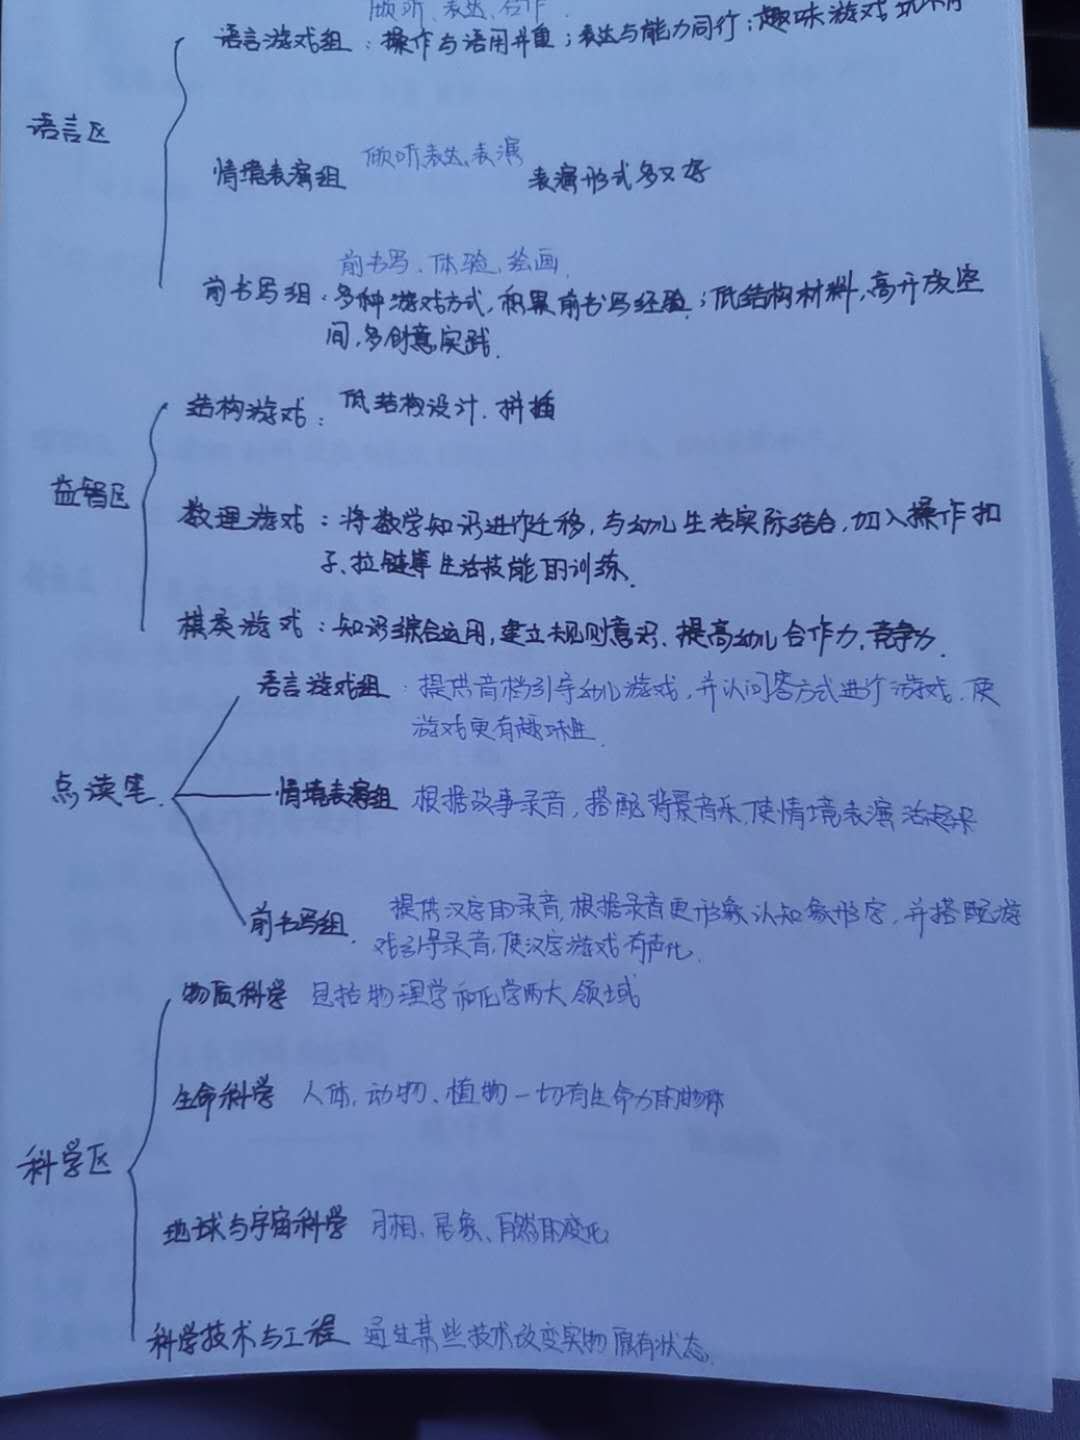 倾听、表达、合作.
语言游戏组：操作与语用并重；表达与能力同行；趣味游戏
语言区
倾听、表达、表演
情境表演组 表演形式多又好
前书写、体验、绘画.
前书写组：多种游戏方式，积累前书写经验；低结构材料，高开放空
间，多创意实践.
结构游戏：低结构设计、拼插
益智区
数理游戏：将数学知识进行迁移，与幼儿生活实际结合，加入操作扣
子、拉链等生活技能的训练.
棋类游戏：知识综合运用，建立规则意识、提高幼儿合作力，竞争力.
语言游戏组：提供音档引导幼儿游戏，并以问答方式进行游戏，使
游戏更有趣味性.
点读笔.
情境表演组 根据故事录音，搭配背景音乐，使情境表演活起来
前书写组. 提供汉字的录音，根据录音更形象认知象形字，并搭配游
戏引导录音，使汉字游戏有声化.
物质科学 包括物理学和化学两大领域
生命科学 人体、动物、植物一切有生命力的物体
科学区
地球与宇宙科学 月相、星象、自然的变化
科学技术与工程 通过某些技术改变实物原有状态.